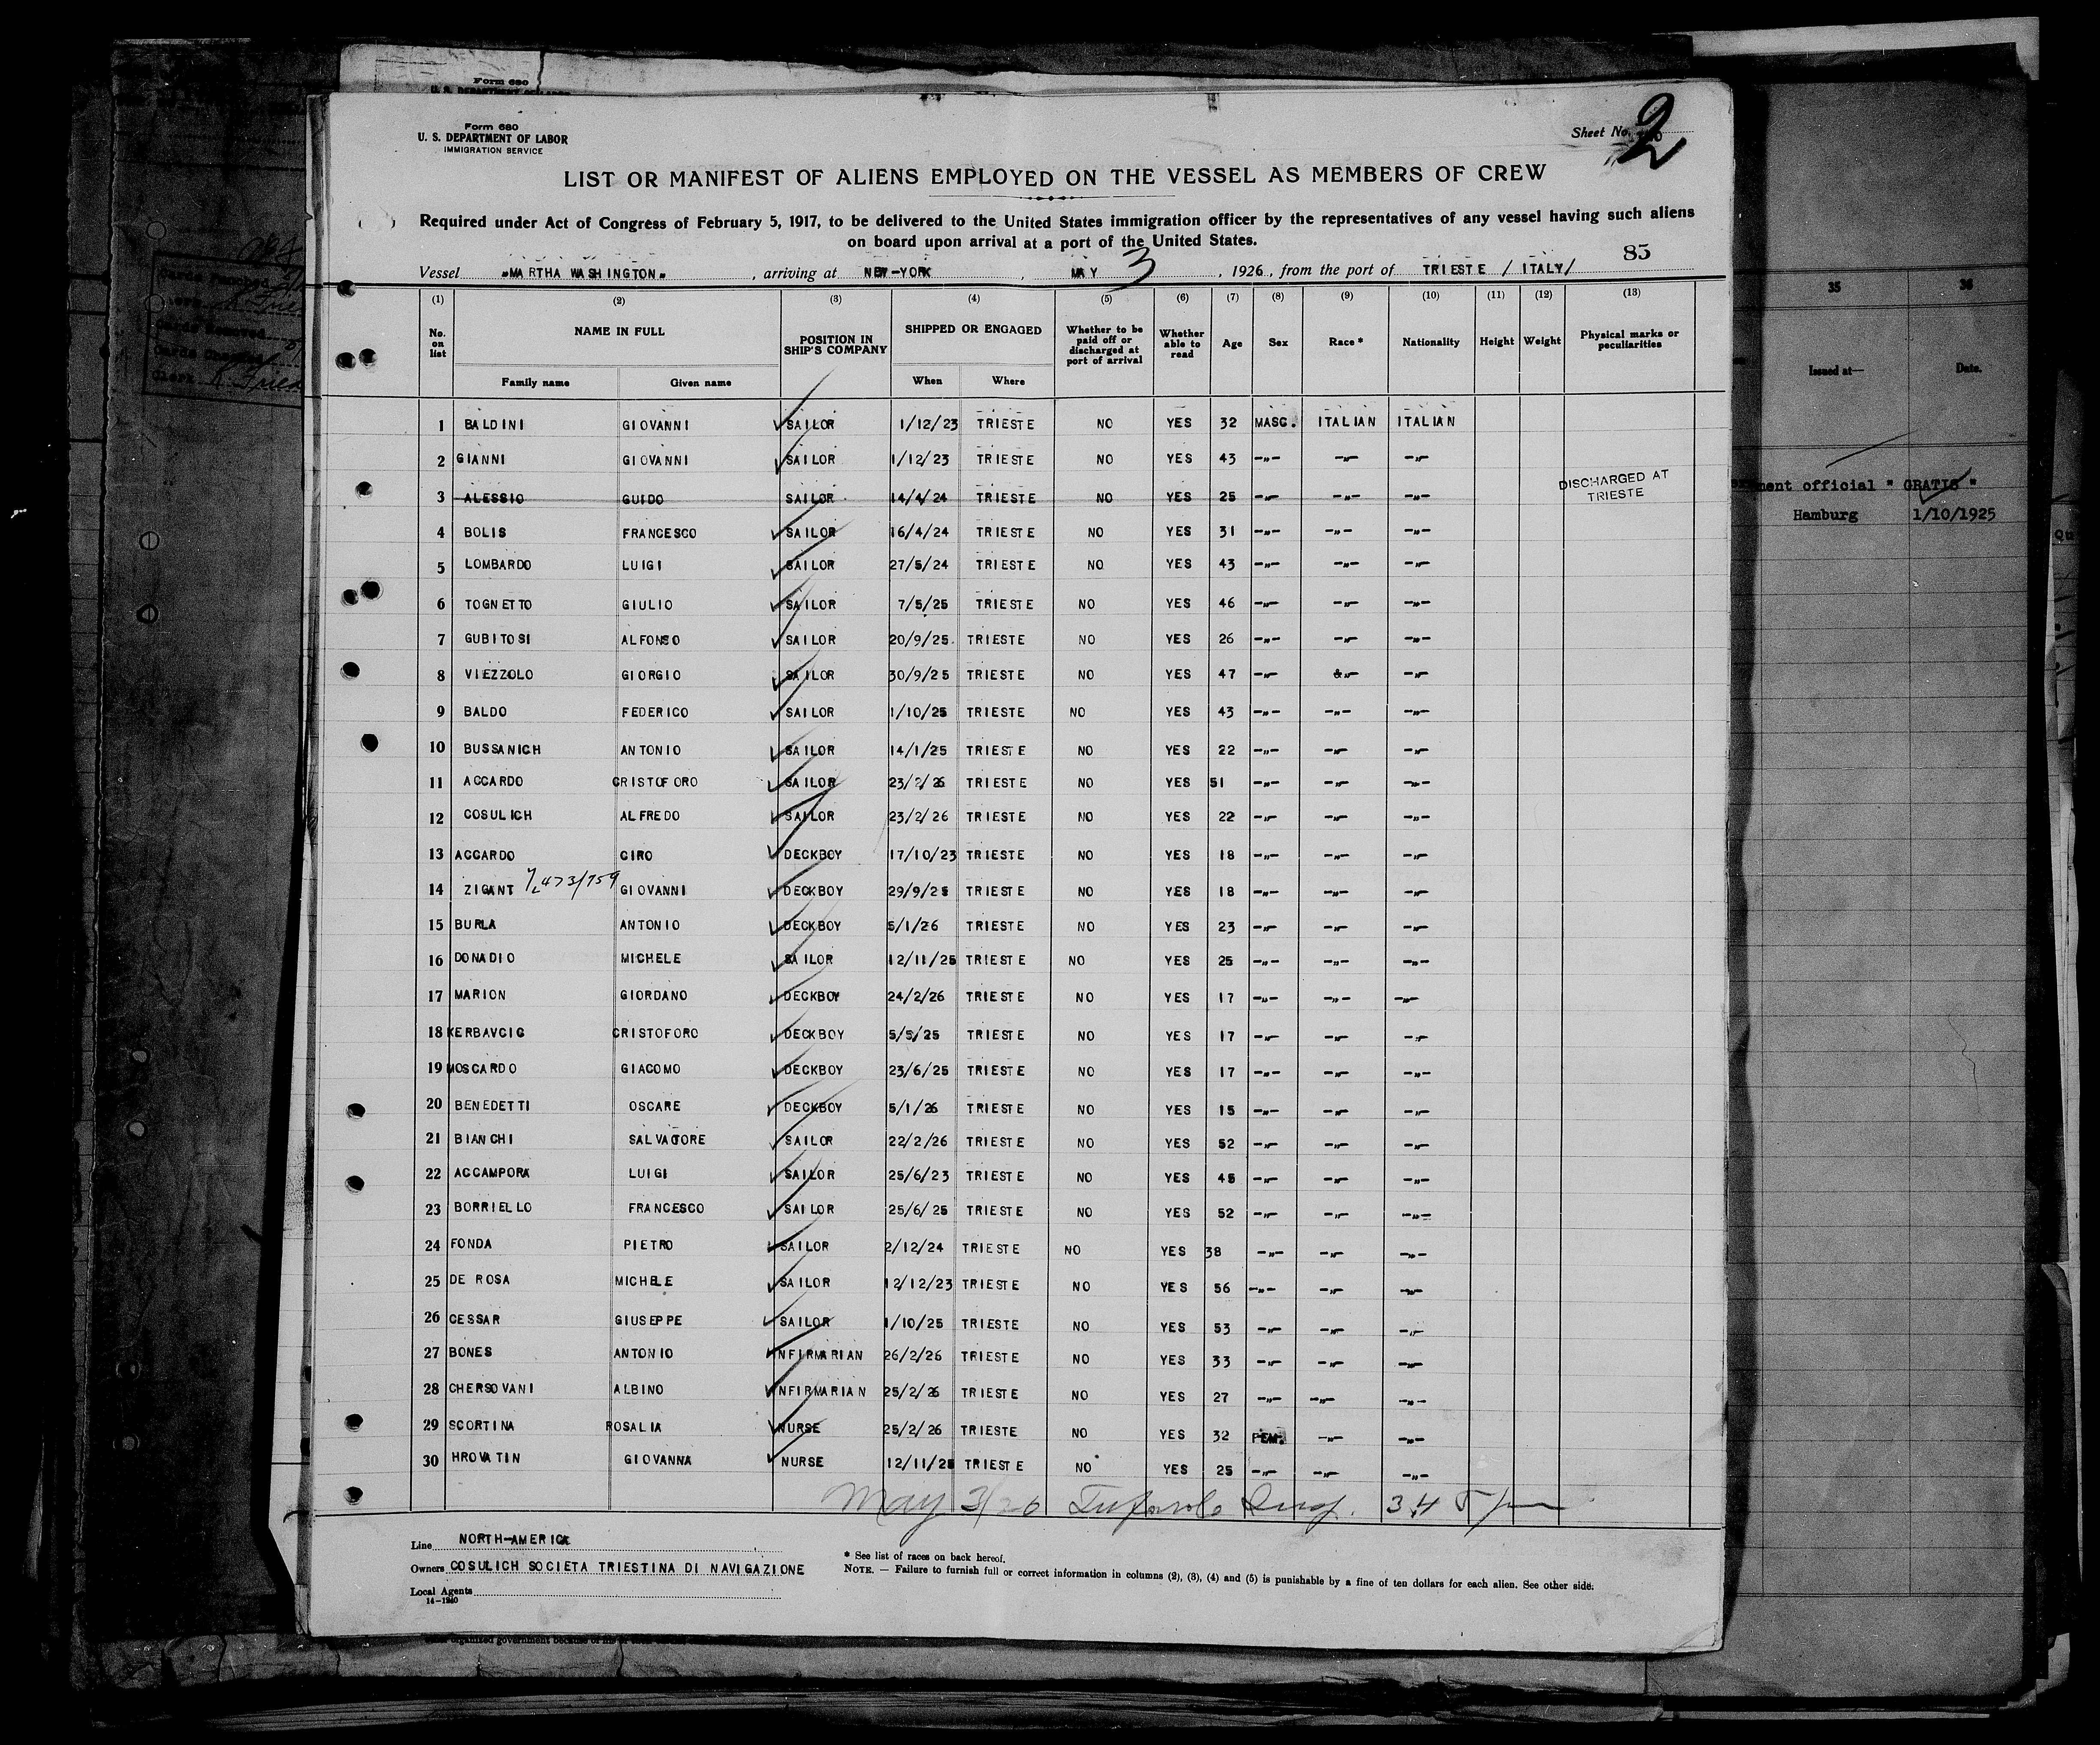 Form 680
U. S. DEPARTMENT OF LABOR
IMMIGRATION SERVICE
Sheet No. 2
LIST OR MANIFEST OF ALIENS EMPLOYED ON THE VESSEL AS MEMBERS OF CREW
Required under Act of Congress of February 5, 1917, to be delivered to the United States immigration officer by the representatives of any vessel having such aliens
on board upon arrival at a port of the United States.
85
Vessel "MARTHA WASHINGTON", arriving at NEW-YORK, MAY 3, 1926, from the port of TRIESTE / ITALY/
(1) (2) (3) (4) (5) (6) (7) (8) (9) (10) (11) (12) (13)
No. on list NAME IN FULL POSITION IN SHIP'S COMPANY SHIPPED OR ENGAGED Whether to be paid off or discharged at port of arrival Whether able to read Age Sex Race* Nationality Height Weight Physical marks or peculiarities
Family name Given name When Where
1 BALDINI GIOVANNI SAILOR 1/12/23 TRIESTE NO YES 32 MASC. ITALIAN ITALIAN
2 GIANNI GIOVANNI SAILOR 1/12/23 TRIESTE NO YES 43 -"- -"- -"-
3 ALESSIO GUIDO SAILOR 14/4/24 TRIESTE NO YES 25 -"- -"- -"- DISCHARGED AT TRIESTE
4 BOLIS FRANCESCO SAILOR 16/4/24 TRIESTE NO YES 31 -"- -"- -"-
5 LOMBARDO LUIGI SAILOR 27/5/24 TRIESTE NO YES 43 -"- -"- -"-
6 TOGNETTO GIULIO SAILOR 7/5/25 TRIESTE NO YES 46 -"- -"- -"-
7 GUBITOSI ALFONSO SAILOR 20/9/25 TRIESTE NO YES 26 -"- -"- -"-
8 VIEZZOLO GIORGIO SAILOR 30/9/25 TRIESTE NO YES 47 -"- &"- -"-
9 BALDO FEDERICO SAILOR 1/10/25 TRIESTE NO YES 43 -"- -"- -"-
10 BUSSANICH ANTONIO SAILOR 14/1/25 TRIESTE NO YES 22 -"- -"- -"-
11 ACCARDO CRISTOFORO SAILOR 23/2/26 TRIESTE NO YES 51 -"- -"- -"-
12 COSULICH ALFREDO SAILOR 23/2/26 TRIESTE NO YES 22 -"- -"- -"-
13 ACCARDO CIRO DECKBOY 17/10/23 TRIESTE NO YES 18 -"- -"- -"-
14 ZIGANT GIOVANNI DECKBOY 29/9/25 TRIESTE NO YES 18 -"- -"- -"-
15 BURLA ANTONIO DECKBOY 5/1/26 TRIESTE NO YES 23 -"- -"- -"-
16 DONADIO MICHELE SAILOR 12/11/25 TRIESTE NO YES 25 -"- -"- -"-
17 MARION GIORDANO DECKBOY 24/2/26 TRIESTE NO YES 17 -"- -"- -"-
18 KERBAVCIC CRISTOFORO DECKBOY 5/5/25 TRIESTE NO YES 17 -"- -"- -"-
19 MOSCARDO GIACOMO DECKBOY 23/6/25 TRIESTE NO YES 17 -"- -"- -"-
20 BENEDETTI OSCARE DECKBOY 5/1/26 TRIESTE NO YES 15 -"- -"- -"-
21 BIANCHI SALVATORE SAILOR 22/2/26 TRIESTE NO YES 52 -"- -"- -"-
22 ACCAMPORA LUIGI SAILOR 25/6/23 TRIESTE NO YES 45 -"- -"- -"-
23 BORRIELLO FRANCESCO SAILOR 25/6/25 TRIESTE NO YES 52 -"- -"- -"-
24 FONDA PIETRO SAILOR 2/12/24 TRIESTE NO YES 38 -"- -"- -"-
25 DE ROSA MICHELE SAILOR 12/12/23 TRIESTE NO YES 56 -"- -"- -"-
26 CESSAR GIUSEPPE SAILOR 1/10/25 TRIESTE NO YES 53 -"- -"- -"-
27 BONES ANTONIO INFIRMARIAN 26/2/26 TRIESTE NO YES 33 -"- -"- -"-
28 CHERSOVANI ALBINO INFIRMARIAN 25/2/26 TRIESTE NO YES 27 -"- -"- -"-
29 SCORTINA ROSALIA NURSE 25/2/26 TRIESTE NO YES 32 FEM. -"- -"-
30 HROVATIN GIOVANNA NURSE 12/11/25 TRIESTE NO YES 25 -"- -"- -"-
May 3/26
Line NORTH-AMERICA
Owners COSULICH SOCIETA TRIESTINA DI NAVIGAZIONE
Local Agents
14-1240
* See list of races on back hereof.
NOTE. — Failure to furnish full or correct information in columns (2), (3), (4) and (5) is punishable by a fine of ten dollars for each alien. See other side.
35 36
Issued at— Date.
official " GRATIS "
Hamburg 1/10/1925